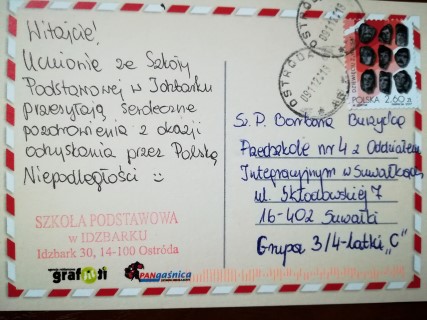 Witajcie!
Uczniowie ze Szkoły
Podstawowej w Idzbarku
przesyłają serdeczne
pozdrowienia z okazji
odzyskania przez Polskę
Niepodległości
SZKOŁA PODSTAWOWA
w IDZBARKU
Idzbark 30, 14-100 Ostróda
graf
PANgaśnica
OSTRÓDA
POLSKA 2,60 zł
Sz. P. Bożena
Przedszkole nr 4 z Oddziałami
Integracyjnymi w Suwałkach
ul. Skłodowskiej 7
16-402 Suwałki
Grupa 3/4-latki „C"